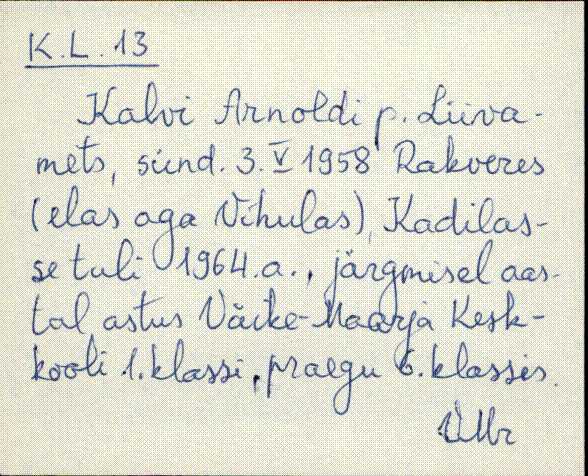 K.L.13
Kalvi Arnoldi p. Liiva-
mets, sünd. 3. V 1958 Rakveres
(elas aga Vihulas), Kadilas-
se tuli 1964.a., järgmisel aas-
tal astus Väike-Maarja Kesk-
kooli 1. klassi, praegu 6. klassis.